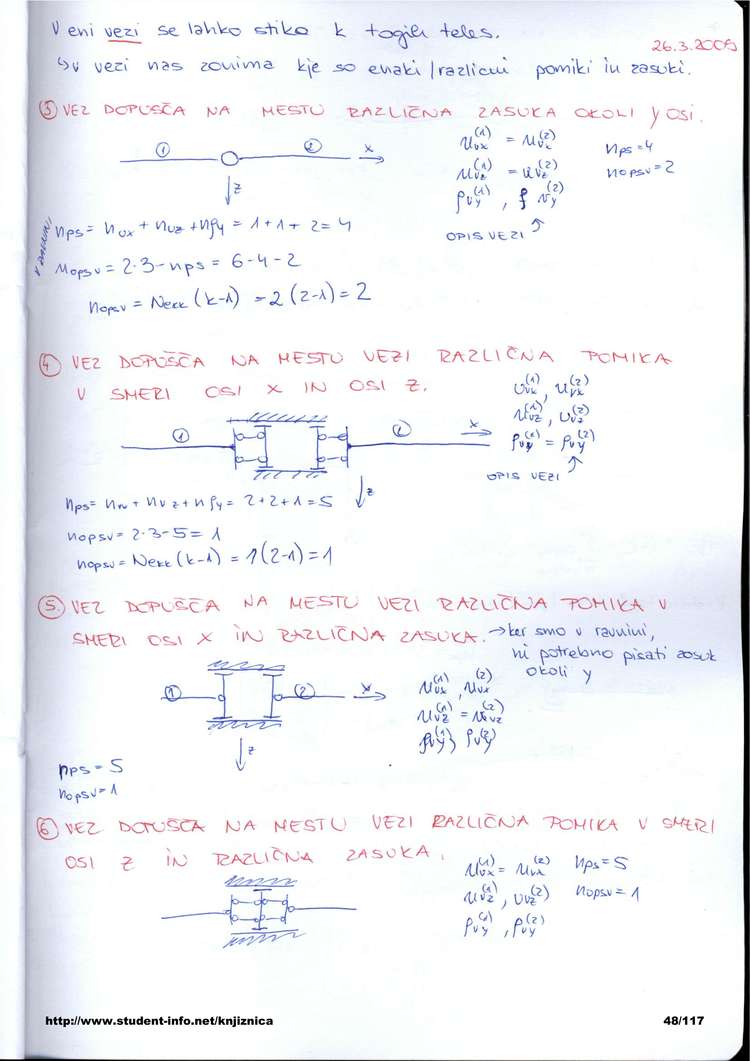 V eni vezi se lahko stika k togih teles.
26.3.2009
↳ v vezi nas zanima kje so enaki/različni pomiki in zasuki.
③ VEZ DOPUŠČA NA MESTU RAZLIČNA ZASUKA OKOLI y OSI.
① ② x
z
u_vx^(1) = u_vx^(2) n_ps=4
u_vz^(1) = u_vz^(2) n_opsv=2
φ_vy^(1), φ_vy^(2)
OPIS VEZI
n_ps = n_ux + n_uz + n_φy = 1+1+2=4
n_opsv = 2·3-n_ps = 6-4-2
n_opsv = N_ekk (k-1) = 2(2-1)=2
④ VEZ DOPUŠČA NA MESTU VEZI RAZLIČNA POMIKA
V SMERI OSI X IN OSI Z.
u_vx^(1), u_vx^(2)
u_vz^(1), u_vz^(2)
φ_vy^(1) = φ_vy^(2)
OPIS VEZI
① ② x
z
n_ps = n_u + n_vz + n_φy = 2+2+1=5
n_opsv = 2·3-5=1
n_opsv = N_ekk (k-1) = 1(2-1)=1
⑤ VEZ DOPUŠČA NA MESTU VEZI RAZLIČNA POMIKA V
SMERI OSI X IN RAZLIČNA ZASUKA. → ker smo v ravnini,
ni potrebno pisati zasuk
okoli y
① ② x
z
u_vx^(1), u_vx^(2)
u_vz^(1) = u_vz^(2)
φ_vy^(1), φ_vy^(2)
n_ps = 5
n_opsv=1
⑥ VEZ DOPUŠČA NA MESTU VEZI RAZLIČNA POMIKA V SMERI
OSI Z IN RAZLIČNA ZASUKA.
u_vx^(1) = u_vx^(2) n_ps=5
u_vz^(1), u_vz^(2) n_opsv=1
φ_vy^(1), φ_vy^(2)
http://www.student-info.net/knjiznica 48/117